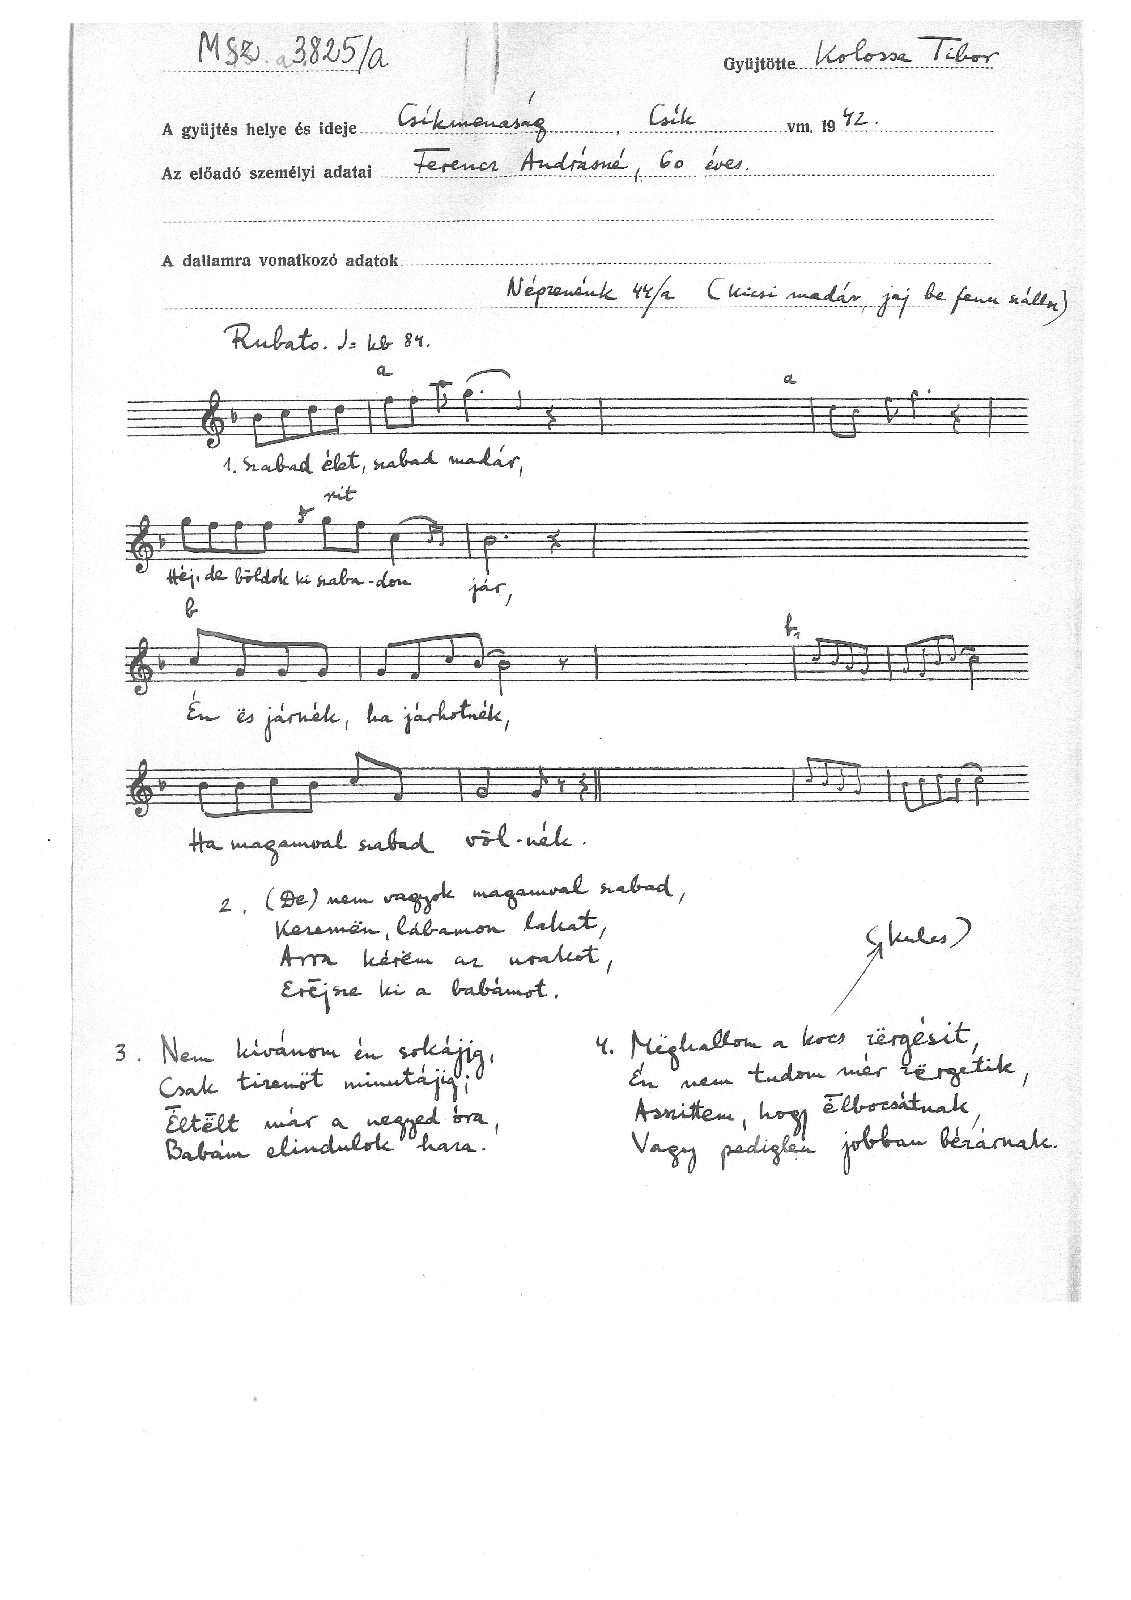 MSZ. a 3825/a
Gyűjtötte Kolossa Tibor
A gyűjtés helye és ideje Csíkmenaság, Csík vm. 1942.
Az előadó személyi adatai Ferencz Andrásné, 60 éves.
A dallamra vonatkozó adatok
Népzenénk 44/a (Kicsi madár, jaj be fenn szállsz)
Rubato. ♩= kb 84.
a
a
1. Szabad élet, szabad madár,
rit
Héj, de bóldok ki szaba-don jár,
b
b1
Én ës járnék, ha járhatnék,
Ha magamval szabad vól-nék.
2. (De) nem vagyok magamval szabad,
Kezemën, lábamon lakat,
Arra kérëm az urakot,
Erējsze ki a babámot.
(kulcs)
3. Nem kívánom én sokájig,
Csak tizenöt minutájig;
Ēltēlt már a negyed óra,
Babám elindulok haza.
4. Mëghallom a kocs zërgésit,
Én nem tudom mér zërgetik,
Asszittem, hogy ēlbocsátnak,
Vagy pediglen jobban bézárnak.